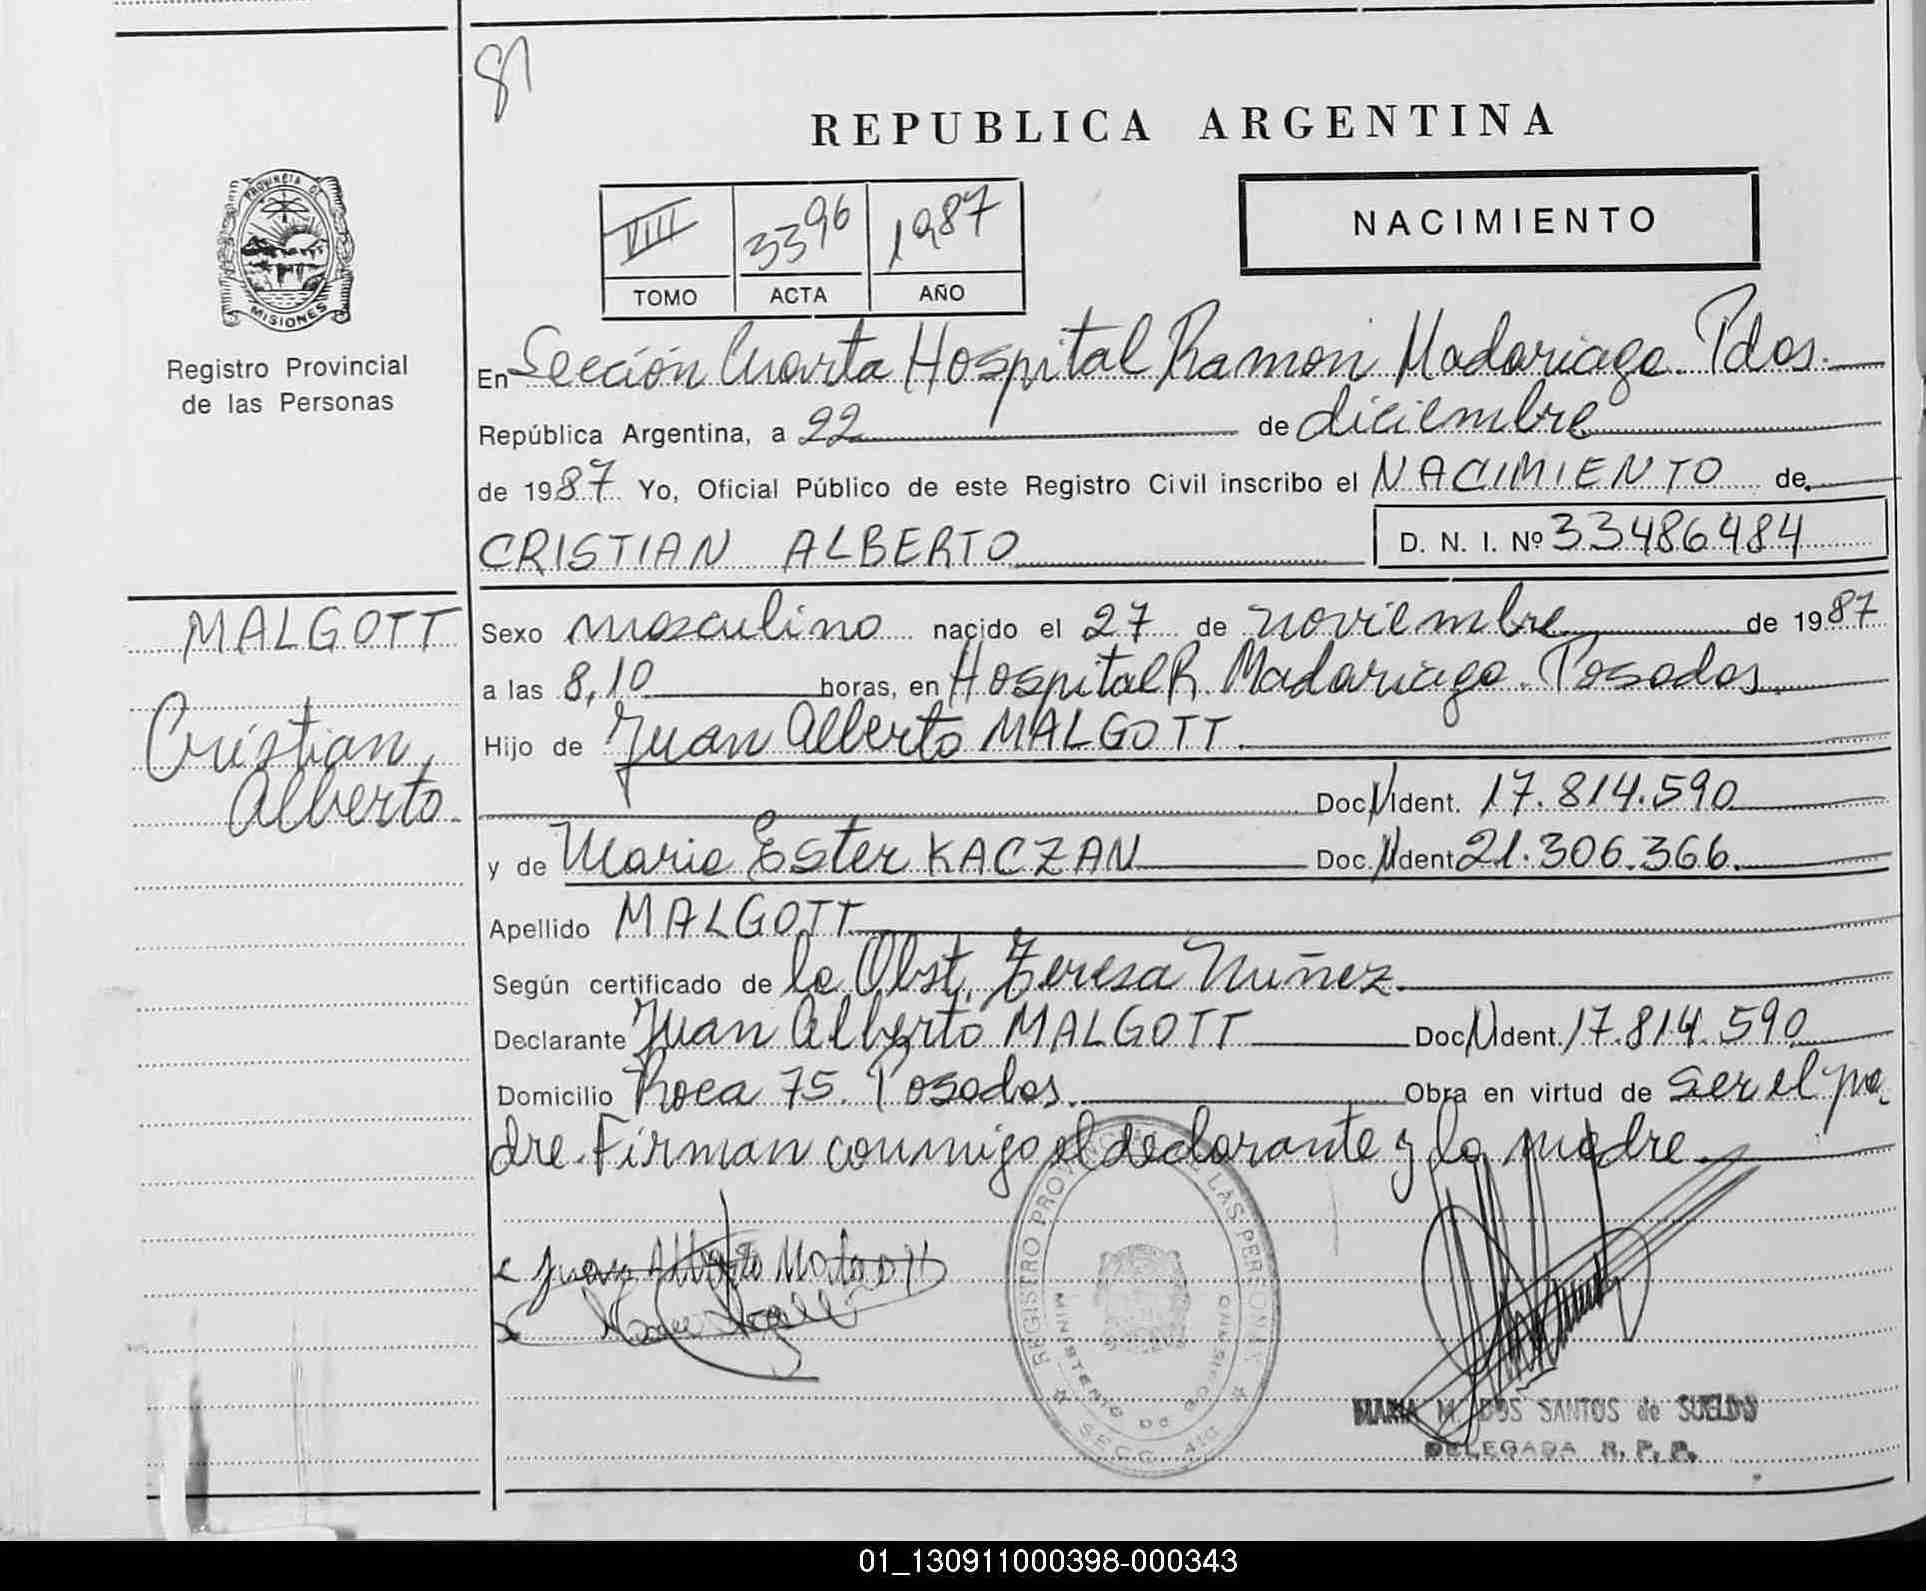 81
REPUBLICA ARGENTINA
PROVINCIA DE
MISIONES
Registro Provincial
de las Personas
VIII 3396 1987
TOMO ACTA AÑO
NACIMIENTO
En Sección Cuarta Hospital Ramon Madariaga. Pdas.
República Argentina, a 22 de diciembre
de 1987 Yo, Oficial Público de este Registro Civil inscribo el NACIMIENTO de
CRISTIAN ALBERTO D. N. I. Nº 33486484
MALGOTT
Cristian
Alberto
Sexo masculino nacido el 27 de noviembre de 1987
a las 8,10 horas, en Hospital R. Madariaga. Posadas.
Hijo de Juan Alberto MALGOTT.
Doc. N Ident. 17.814.590
y de Maria Ester KACZAN Doc. N Ident 21.306.366.
Apellido MALGOTT
Según certificado de la Obst. Teresa Nuñez.
Declarante Juan Alberto MALGOTT Doc. N Ident. 17.814.590
Domicilio Roca 75. Posadas. Obra en virtud de ser el pa
dre. Firman conmigo el declarante y la madre.
Juan Alberto Malgott
REGISTRO PROVINCIAL DE LAS PERSONAS
MINISTERIO DE GOBIERNO
SECC. 4ta
MARIA M. DOS SANTOS de SUELDO
DELEGADA R. P. P.
01_130911000398-000343